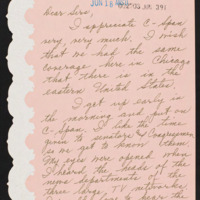 JUN 18
Dear Sirs,
I appreciate C-Span
very, very much. I wish
that we had the same
coverage here in Chicago
that there is in the
eastern United States.
I get up early in
the morning and put on
C-Span. I like the time
given to senators & Congressmen
so we get to know them.
My eyes were opened when
I heard the heads of the
news departments of the
three large TV networks